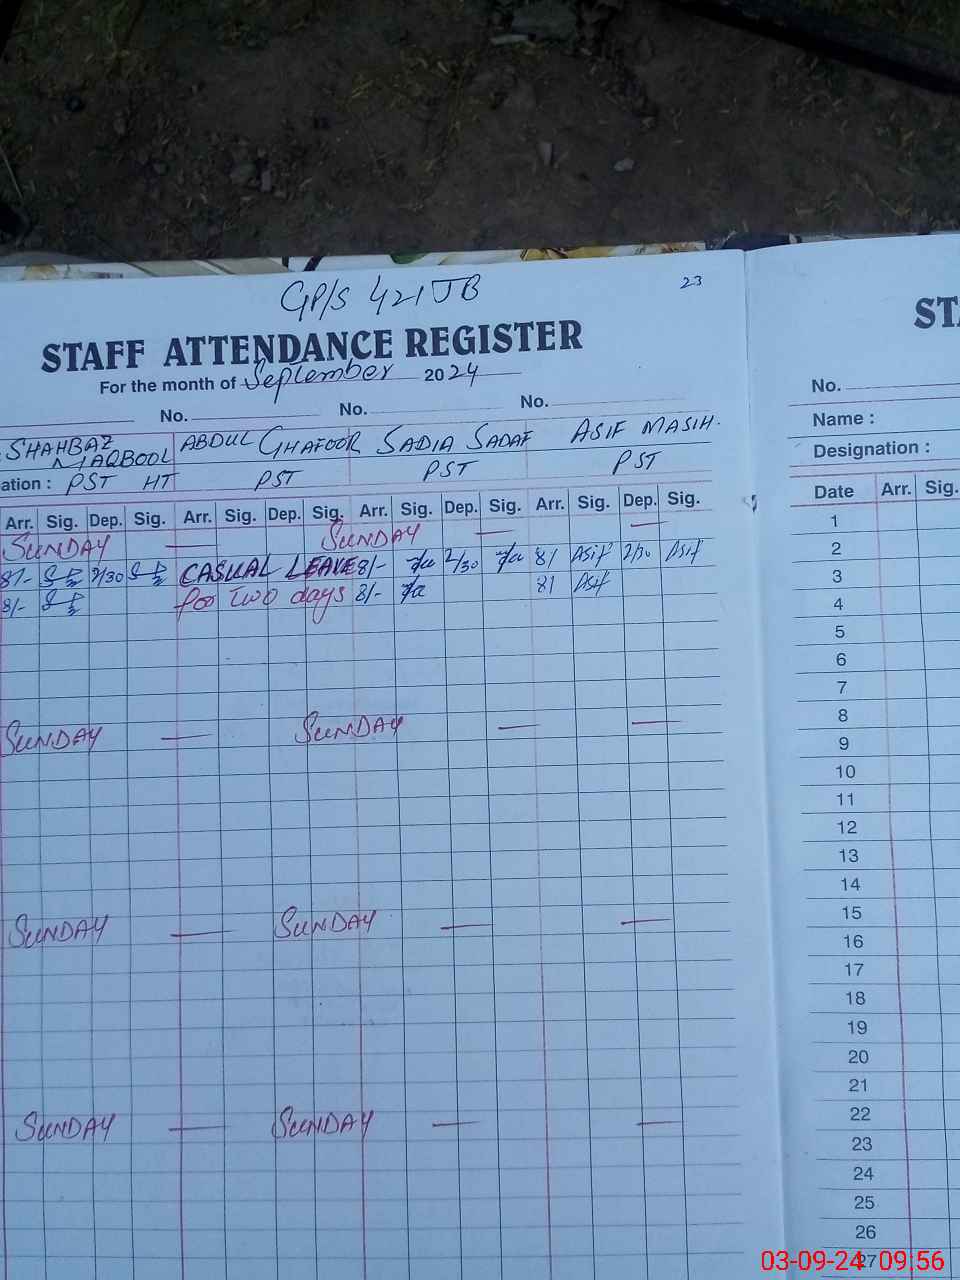 GP/S 421 JB
23
STAFF ATTENDANCE REGISTER
For the month of September 2024
No. No. No.
SHAHBAZ MAQBOOL ABDUL GHAFOOR SADIA SADAF ASIF MASIH.
ation : PST HT PST PST PST
Arr. Sig. Dep. Sig. Arr. Sig. Dep. Sig. Arr. Sig. Dep. Sig. Arr. Sig. Dep. Sig.
SUNDAY — SUNDAY — —
8/- 2/30 CASUAL LEAVE 8/- 2/30 8/ Asif 2/30 Asif
8/- for Two days 8/- 8/ Asif
SUNDAY — SUNDAY — —
SUNDAY — SUNDAY — —
SUNDAY — SUNDAY — —
ST
No.
Name :
Designation :
Date Arr. Sig.
1
2
3
4
5
6
7
8
9
10
11
12
13
14
15
16
17
18
19
20
21
22
23
24
25
26
27
03-09-24 09:56